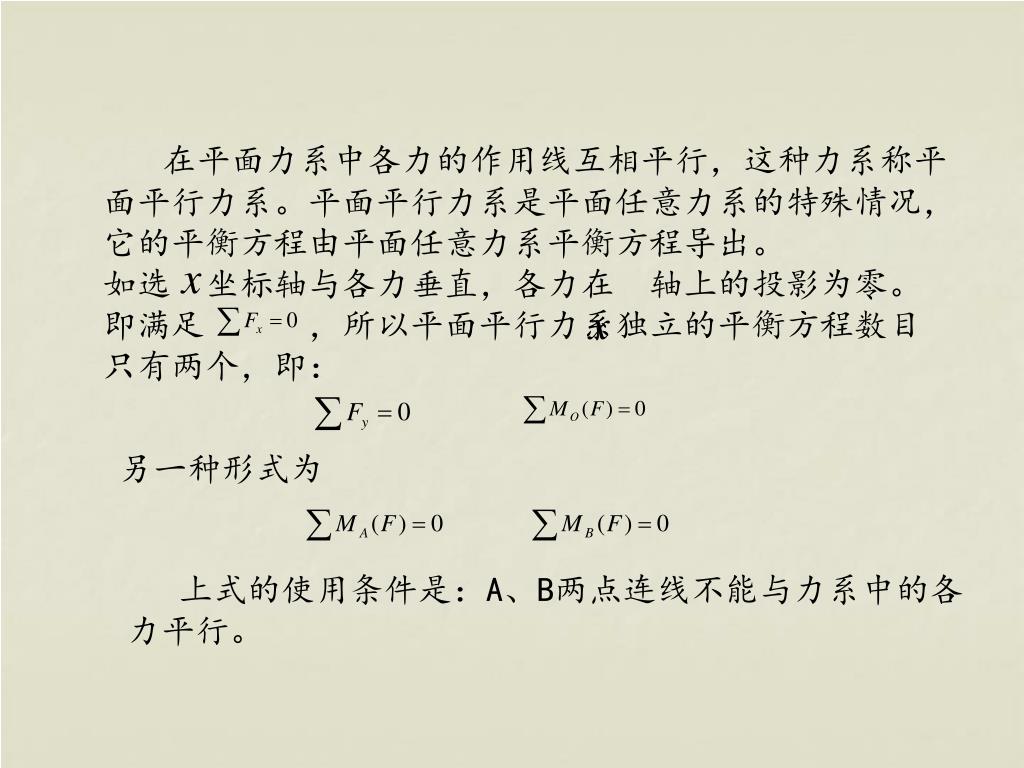 在平面力系中各力的作用线互相平行，这种力系称平
面平行力系。平面平行力系是平面任意力系的特殊情况，
它的平衡方程由平面任意力系平衡方程导出。
如选 x 坐标轴与各力垂直，各力在 轴上的投影为零。
即满足 ∑Fx=0 ，所以平面平行力系x独立的平衡方程数目
只有两个，即：
∑Fy=0 ∑MO(F)=0
另一种形式为
∑MA(F)=0 ∑MB(F)=0
上式的使用条件是：A、B两点连线不能与力系中的各
力平行。